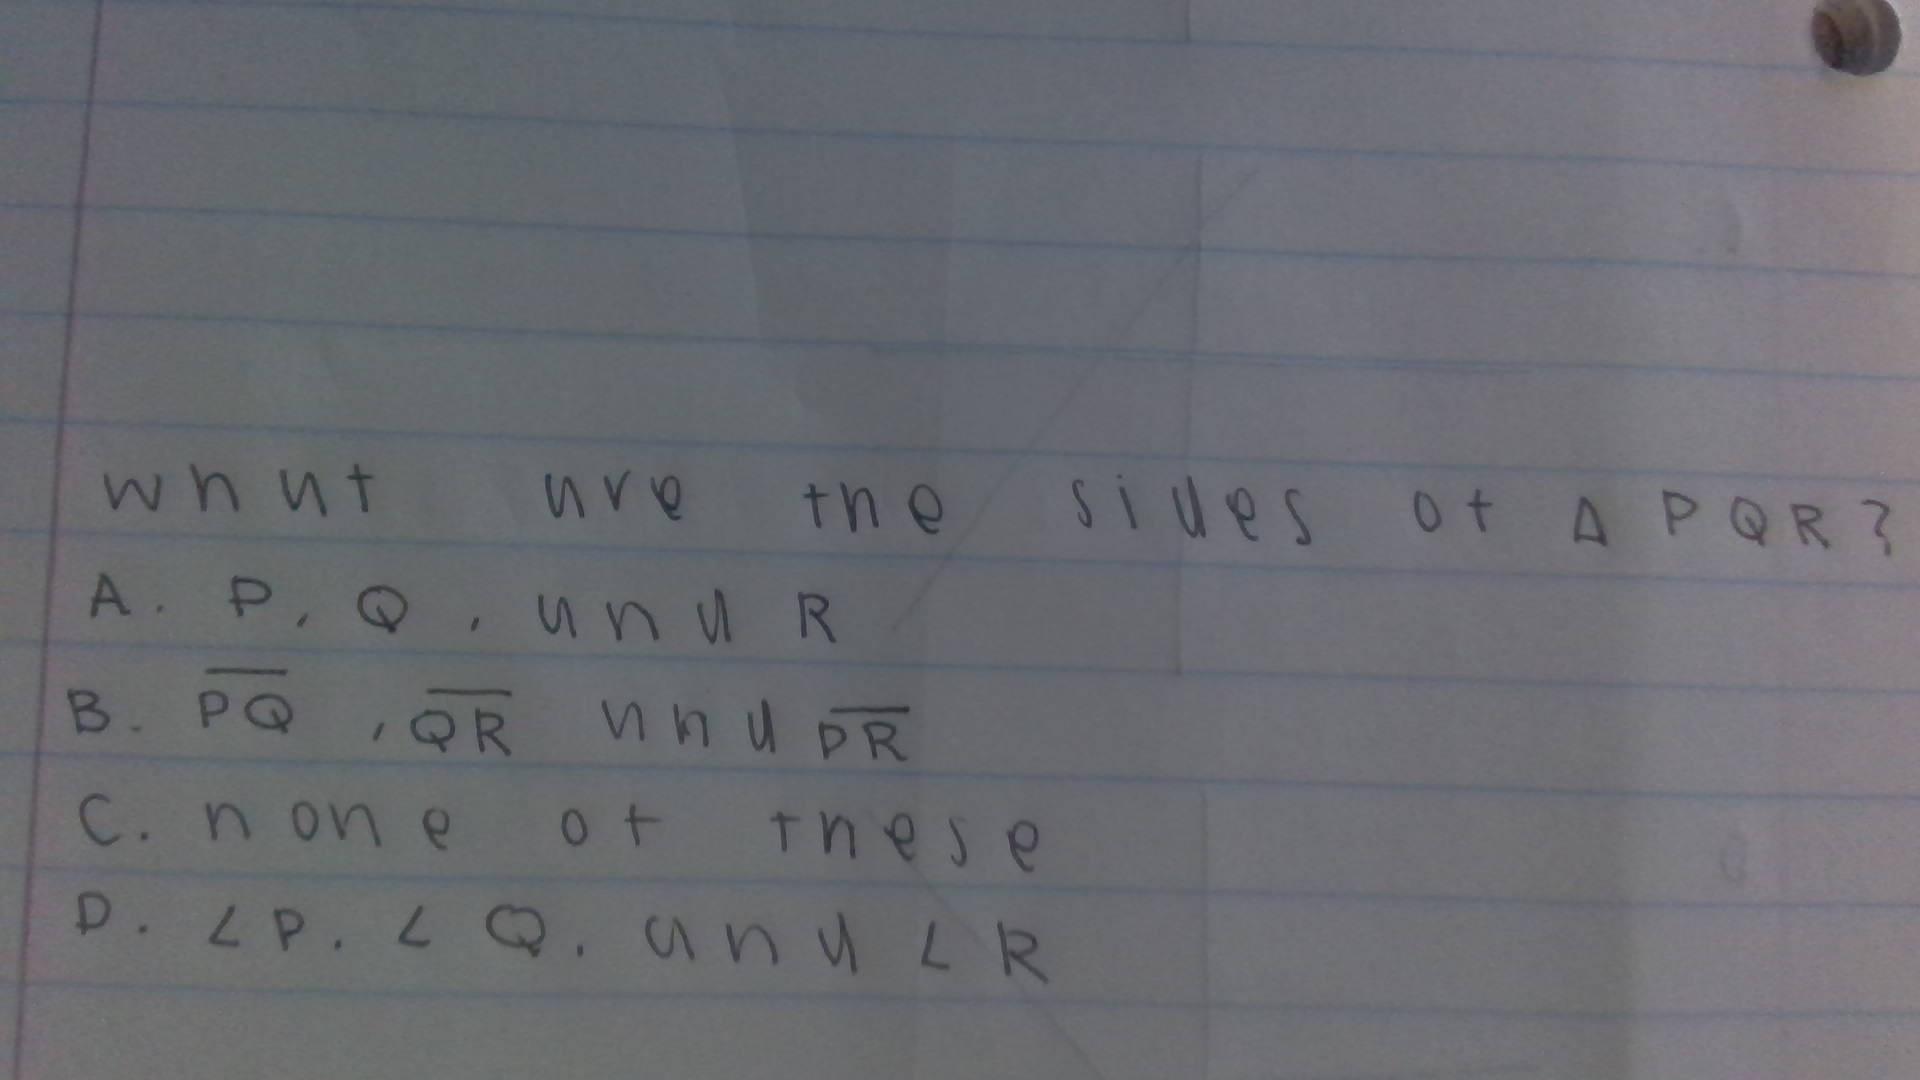 what are the sides of Δ PQR?
A. P, Q, and R
B. P̅Q̅, Q̅R̅ and P̅R̅
C. none of these
D. ∠P, ∠Q, and ∠R